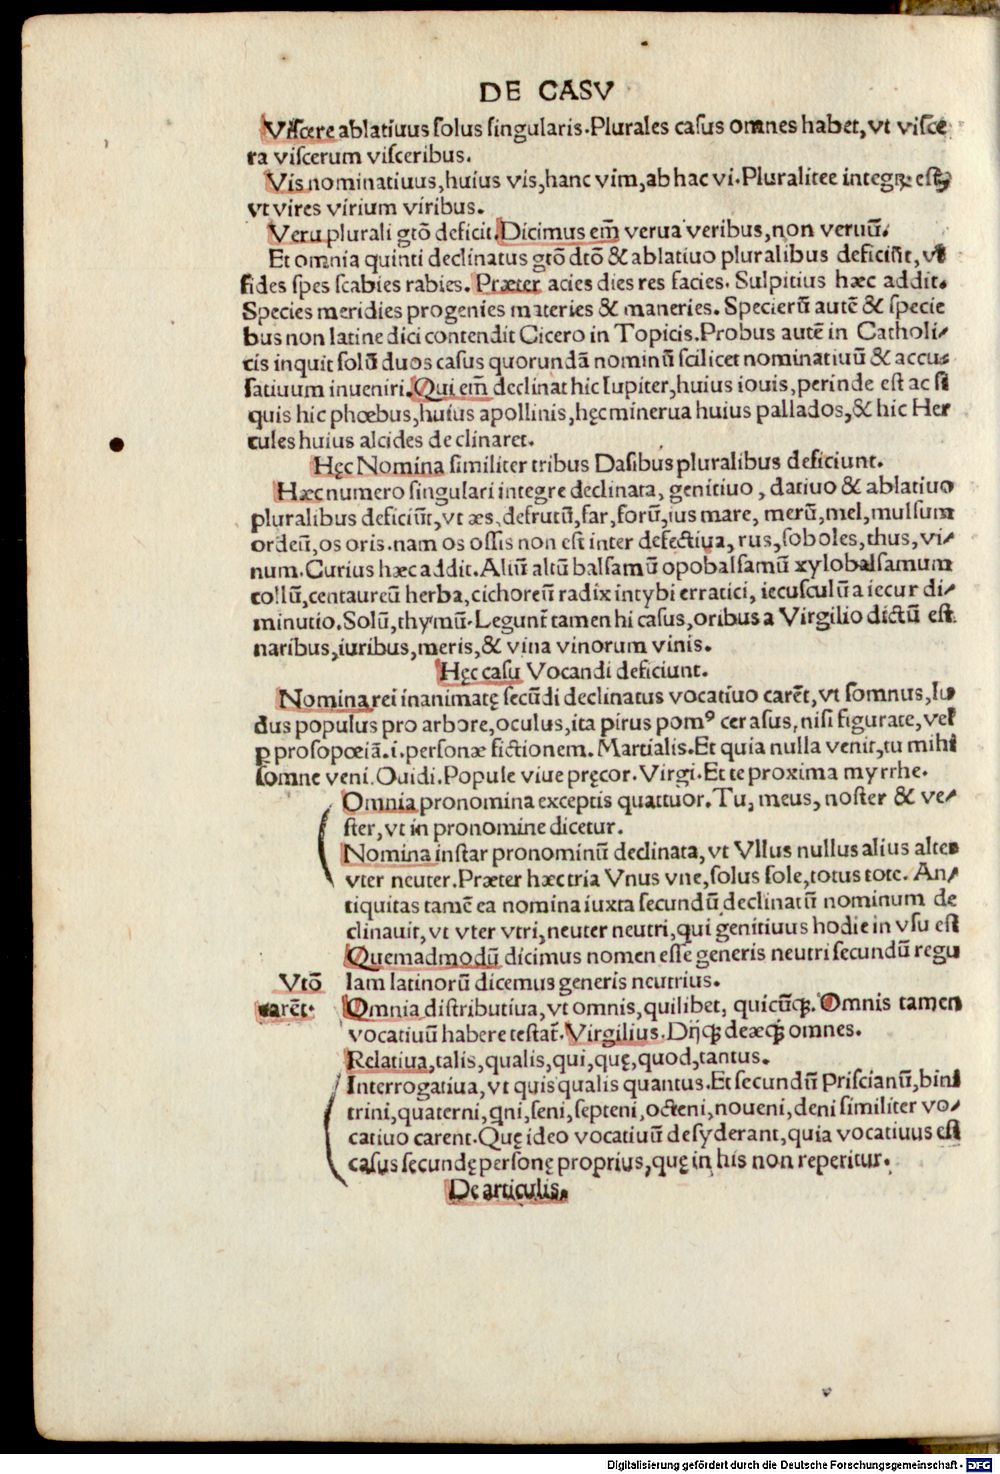 DE CASV
Viſcere ablatiuus ſolus ſingularis.Plurales caſus omnes habet,vt viſce
ra viſcerum viſceribus.
Vis nominatiuus,huius vis,hanc vim,ab hac vi.Pluralitee integꝝ eſt,
vt vires virium viribus.
Veru plurali gtō deficit.Dicimus em̄ verua veribus,non veruū.
Et omnia quinti declinatus gtō dtō & ablatiuo pluralibus deficiūt, vt
fides ſpes ſcabies rabies. Præter acies dies res facies. Sulpitius hæc addit.
Species meridies progenies materies & maneries. Specierū autē & ſpecie
bus non latine dici contendit Cicero in Topicis.Probus autē in Catholi/
cis inquit ſolū duos caſus quorundā nominū ſcilicet nominatiuū & accu⸗
ſatiuum inueniri.Qui em̄ declinat hic Iupiter,huius iouis,perinde eſt ac ſi
quis hic phœbus,huius apollinis,hęc minerua huius pallados,& hic Her
cules huius alcides de clinaret.
Hęc Nomina ſimiliter tribus Daſibus pluralibus deficiunt.
Hæc numero ſingulari integre declinata, genitiuo, datiuo & ablatiuo
pluralibus deficiūt,vt æs, defrutū,far,forū,ius mare, merū,mel,mulſum
ordeū,os oris.nam os oſſis non eſt inter defectiua, rus,ſoboles,thus,vi/
num.Curius hæc addit.Aliū altū balſamū opobalſamū xylobalſamum
collū,centaureū herba,cichoreū radix intybi erratici, iecuſculū a iecur di/
minutio.Solū,thymū.Legunt̄ tamen hi caſus,oribus a Virgilio dictū eſt.
naribus,iuribus,meris,& vina vinorum vinis.
Hęc caſu Vocandi deficiunt.
Nomina rei inanimatę ſecūdi declinatus vocatiuo carēt,vt ſomnus,lu
dus populus pro arbore,oculus,ita pirus pomꝰ ceraſus,niſi figurate,vel
ꝑ proſopœiā.i.perſonæ fictionem. Martialis.Et quia nulla venit,tu mihi
ſomne veni.Ouidi.Popule viue pręcor.Virgi.Et te proxima myrrhe.
Omnia pronomina exceptis quattuor.Tu, meus, noſter & ve/
ſter,vt in pronomine dicetur.
Nomina inſtar pronominū declinata,vt Vllus nullus alius alter
vter neuter.Præter hæc tria Vnus vne,ſolus ſole,totus tote. An/
tiquitas tamē ea nomina iuxta ſecundū declinatū nominum de
clinauit,vt vter vtri,neuter neutri,qui genitiuus hodie in vſu eſt
Quemadmodū dicimus nomen eſſe generis neutri ſecundū regu
Vtō lam latinorū dicemus generis neutrius.
carēt. Omnia diſtributiua,vt omnis,quilibet, quicūqꝫ.Omnis tamen
vocatiuū habere teſtat̄.Virgilius.Dijqꝫ deæqꝫ omnes.
Relatiua,talis,qualis,qui,quę,quod,tantus.
Interrogatiua,vt quis qualis quantus.Et ſecundū Priſcianū,bini
trini,quaterni,q̄ni,ſeni,ſepteni,octeni,noueni,deni ſimiliter vo/
catiuo carent.Quę ideo vocatiuū deſyderant,quia vocatiuus eſt
caſus ſecundę perſonę proprius,quę in his non reperitur.
De articulis.
Digitalisierung gefördert durch die Deutsche Forschungsgemeinschaft - DFG